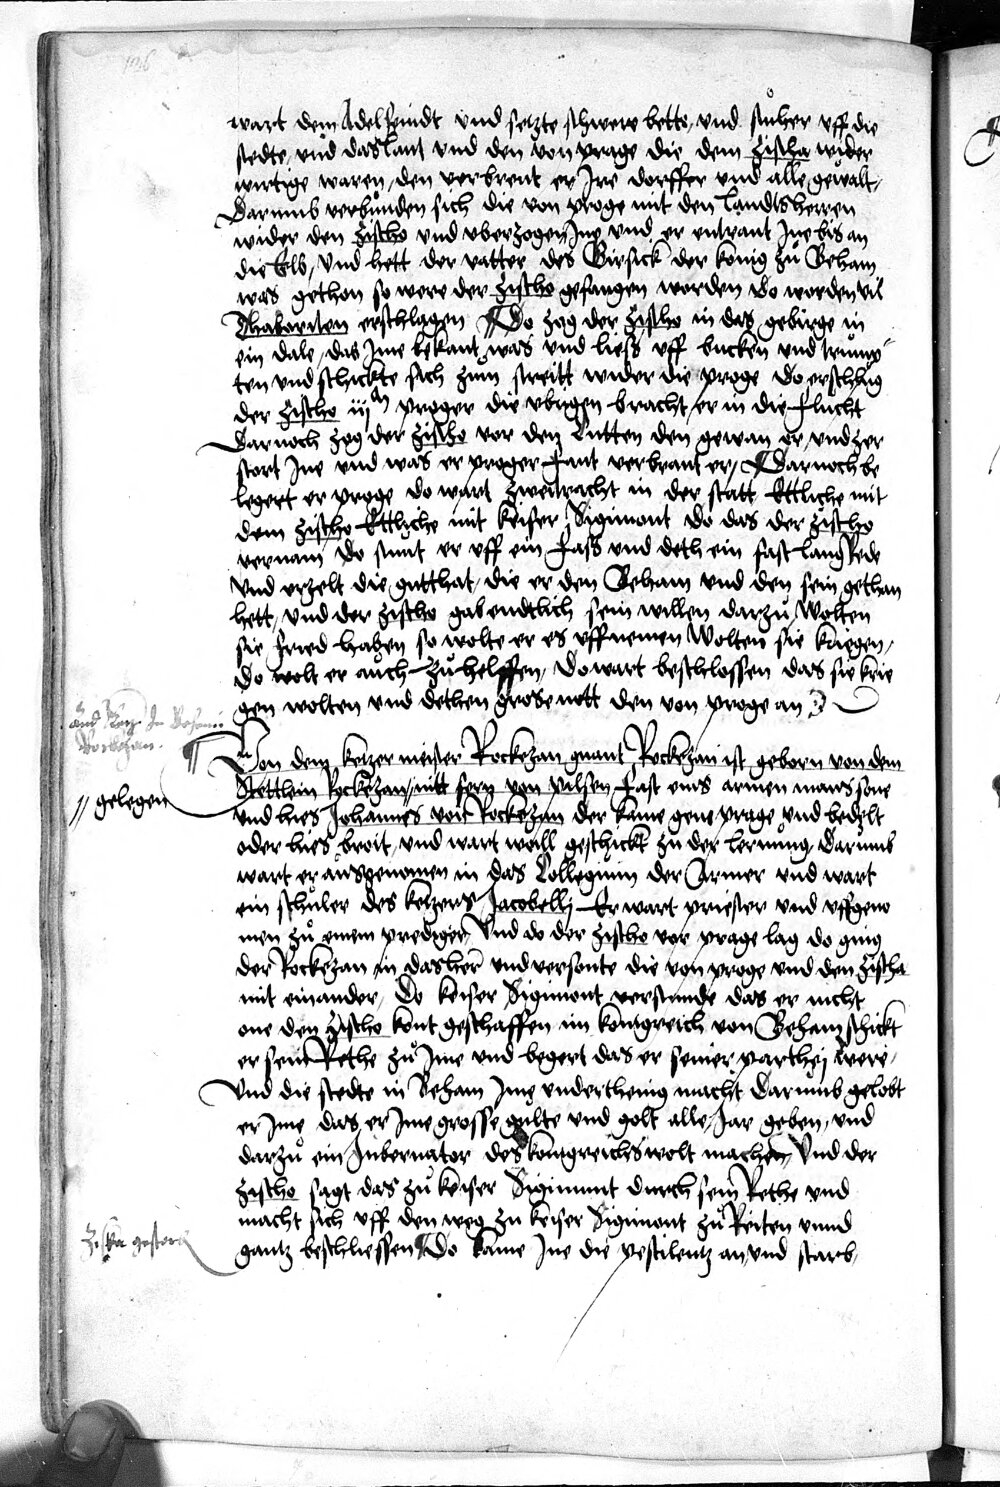 wart dem Adel feindt vnd setzte schwere bette vnd stuͦher vff die
stedte vnd das lant vnd den von prage die dem Zischa wider
wirtige waren, den verbrent er Ire dorffer vnd alle gewalt,
Darumb verbunden sich die von proge mit den Landtsherren
wider den Zischo vnd vberzogen Jne vnd er entrant Jne bis an
die Elb, Vnd hett der vatter des Girsick der konig zuͦ Beham
was gethon so were der Zischo gefangen worden do worden vil
Thaboriten erschlagen Do zog der Zischo in das gebirge in
ein dale, das Jme bekant was vnd liess vff bucken vnd trump
ten vnd schickte sich zum streitt wider die proge do erschlug
der Zischo iijM proger die vbrigen bracht er in die flucht
Darnoch zog der Zischo vor den Cutten den gewan er vnd zer
stort Jne vnd was er proger fant verbrant er, Darnoch be
legert er proge do wart zweitracht in der statt Ettliche mit
dem Zischo Ettliche mit keiser Sigimont do das der Zischo
vernam Do stunt er vff ein fass vnd deth ein fast lang Rede
Vnd erzelt die gutthat, die er den Beham vnd den sein gethan
hett, vnd der Zischo gab endtlich sein willen darzuͦ Wolten
sie fried haben so wolte er es vffnemen Wolten sie kriegen,
Do wolt er auch zuͦ helffen, Do wart beschlossen das sie krie
gen wolten vnd dethen grose nott den von proge an
Von dem ketzer meister Rockezan gnant Rockezan ist geborn von dem
Stettlein Rockezan nitt fern von pilsen fast eins armen mans sone
// gelegen
vnd hies Johannes von Rockezan der kame gene prage vnd bedelt
oder hies broit, vnd wart woll geschickt zuͦ der lernung, darumb
wart er aussgenomen in das Collegium der Armer vnd wart
ein schuler des ketzers Jacobellj Er wart priester vnd vffgeno
men zuͦ einem prediger, Vnd do der Zischo vor prage lag do ging
der Rockezan in das her vnd versonte die von proge vnd den Zischa
mit einander, Do keiser Sigimont verstunde das er nicht
one den Zischo kont geschaffen im konigreich von Beham schickt
er sein Rethe zuͦ Jme vnd begert das er seiner parthej were,
Vnd die stedte in Beham Jme vnderthenig macht Darumb gelobt
er Jme das er Jme grosse gulte vnd golt alle Jar geben, vnd
darzuͦ ein Gubernator des konigreichs wolt machen, Vnd der
Zischo sagt das zuͦ keiser Sigimunt durch sein Rethe vnd
macht sich vff den weg zu keiser Sigimont zuͦ Reiten vnnd
Ziska gestorb
gantz beschliessen Do kame Jne die pestilentz an vnd starb,